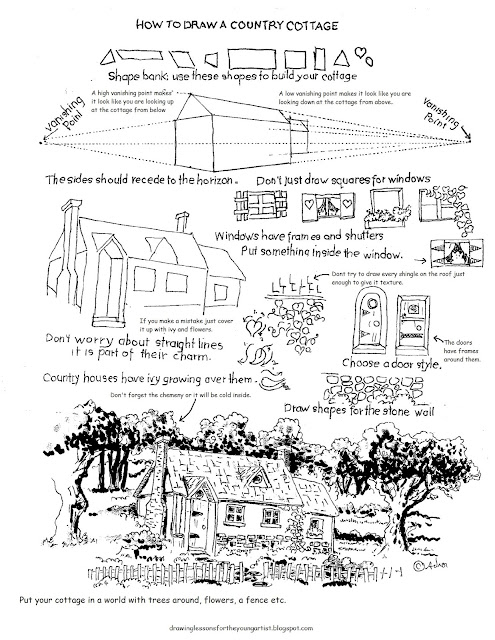 HOW TO DRAW A COUNTRY COTTAGE
Shape bank: use these shapes to build your cottage
A high vanishing point makes'
it look like you are looking up
at the cottage from below
A low vanishing point makes it look like you are
looking down at the cottage from above.
Vanishing
Point
Vanishing
Point
The sides should recede to the horizon.
Don't just draw squares for windows
Windows have frames and shutters
Put something inside the window.
Dont try to draw every shingle on the roof just
enough to give it texture.
If you make a mistake just cover
it up with ivy and flowers.
Don't worry about straight lines
it is part of their charm.
The doors
have frames
around them.
Choose a door style.
Country houses have ivy growing over them.
Don't forget the chemeny or it will be cold inside.
Draw shapes for the stone wall
Put your cottage in a world with trees around, flowers, a fence etc.
drawinglessonsfortheyoungartist.blogspot.com